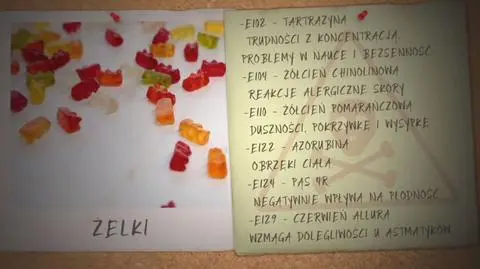 ŻELKI
-E102 - TARTRAZYNA
TRUDNOŚCI Z KONCENTRACJĄ
PROBLEMY W NAUCE I BEZSENNOŚĆ
-E104 - ŻÓŁCIEŃ CHINOLINOWA
REAKCJE ALERGICZNE SKÓRY
-E110 - ŻÓŁCIEŃ POMARAŃCZOWA
DUSZNOŚCI, POKRZYWKE I WYSYPKE
-E122 - AZORUBINA
OBRZEKI CIAŁA
-E124 - PĄS 4R
NEGATYWNIE WPŁYWA NA PŁODNOŚĆ
-E129 - CZERWIEŃ ALLURA
WZMAGA DOLEGLIWOŚCI U ASTMATYKÓW